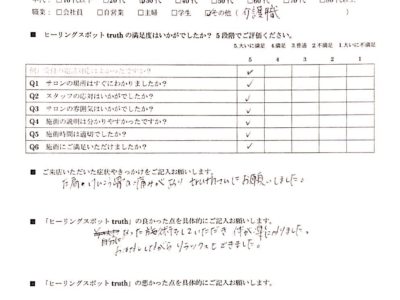 職業 □会社員 □自営業 □主婦 □学生 ☑その他( 介護職 )
■ ヒーリングスポット truth の満足度はいかがでしたか? 5段階でご評価ください。
5.大いに満足 4.満足 3.普通 2.不満足 1.大いに不満足
5 4 3 2 1
Q1 サロンの場所はすぐにわかりましたか? ✓
Q2 スタッフの応対はいかがでしたか? ✓
Q3 サロンの雰囲気はいかがでしたか? ✓
Q4 施術の説明は分かりやすかったですか? ✓
Q5 施術時間は適切でしたか? ✓
Q6 施術にご満足いただけましたか? ✓
■ ご来店いただいた症状やきっかけをご記入お願いします。
お願いしました。
■ 「ヒーリングスポット truth」の良かった点を具体的にご記入お願いします。
自分に あった施術をしていただき 体が楽になりました。
リラックスもできました。
■ 「ヒーリングスポット truth」の悪かった点を具体的にご記入お願いします。